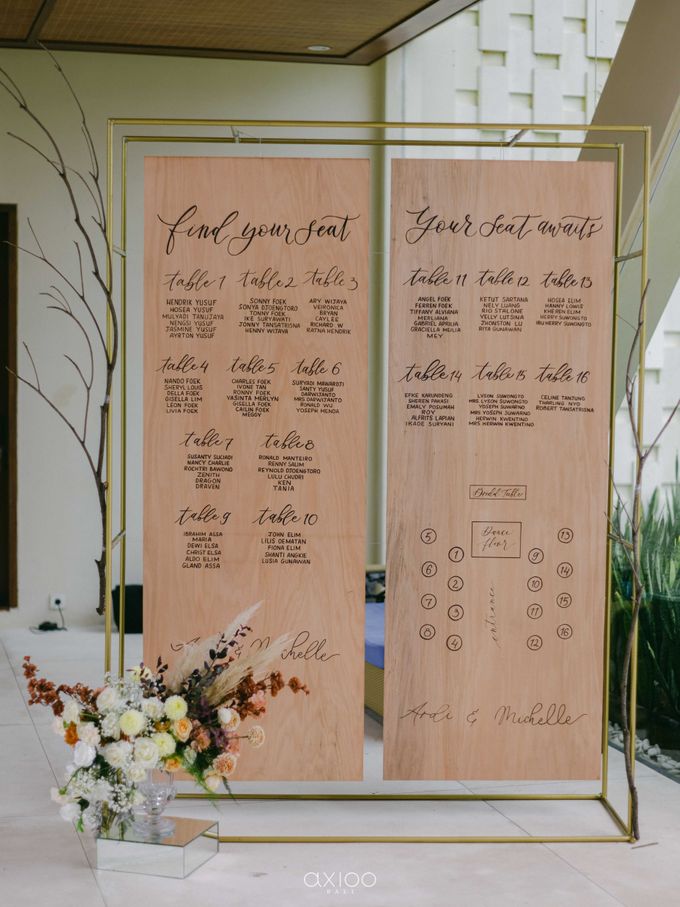 find your seat
table 1
HENDRIK YUSUF
HOSEA YUSUF
MULYADI TANUJAYA
NENGSI YUSUF
JASMINE YUSUF
AYRTON YUSUF
table 2
SONNY FOEK
SONYA DJOENGTORO
TONNY FOEK
IKE SURYAWATI
JONNY TANSATRISNA
HENNY WIJAYA
table 3
ARY WIJAYA
VEIRONICA
BRYAN
CAYLEE
RICHARD W
RATNA HENDRIK
table 4
NANDO FOEK
SHERYL LOUIS
DELLA FOEK
GISELLA LIM
LEON FOEK
LIVIA FOEK
table 5
CHARLES FOEK
IVONE TAN
RONNY FOEK
YASINTA MERLYN
GISELLA FOEK
CAILIN FOEK
MEGGY
table 6
SURYADI MAWAROTI
SANTY YUSUF
DARWITANTO
MRS DARWITANTO
RONALD WU
YOSEPH MENDA
table 7
SUSANTY SUCIADI
NANCY CHARLIE
ROCHTRI BAWONO
ZENITH
DRAGON
DRAVEN
table 8
RONALD MANTEIRO
RENNY SALIM
REYNOLD DJOENGTORO
LULU CHUDRI
KEN
TANIA
table 9
IBRAHIM ALSA
MARIA
DEWI ELSA
CHRIST ELSA
ALDO ELIM
GLAND ASSA
table 10
JOHN ELIM
LILIS OEMATAN
FIONA ELIM
SHANTI ANGKIE
LUSIA GUNAWAN
& Michelle
Your seat awaits
table 11
ANGEL FOEK
FERREN FOEK
TIFFANY ALVIANA
MERLIANA
GABRIEL APRILIA
GRACIELLA MULIA
MEY
table 12
KETUT SARTANA
NELY LUANG
RIO STALONE
YELLY LUTSINA
JHONSTON LU
RITA GUNAWAN
table 13
HOSEA ELIM
HANNY LOWIR
KHEREN ELIM
HERRY SUWONGTO
IBU HERRY SUWONGTO
table 14
EFKE KARUNDENG
SHEREN PAKASI
EMALY POSUMAH
ROY
ALFRITS LAPIAN
IKADE SURYANI
table 15
LYSON SUWONGTO
MRS LYSON SUWONGTO
YOSEPH JUWARNO
MRS YOSEPH JUWARNO
HERWIN KWENTINO
MRS HERWIN KWENTINO
table 16
CELINE TANTUNG
THARLING NYO
ROBERT TANSATRISNA
Bridal Table
Dance
floor
5
1
9
13
6
2
10
14
7
3
11
15
8
4
12
16
entrance
Ardi & Michelle
axioo
BALI